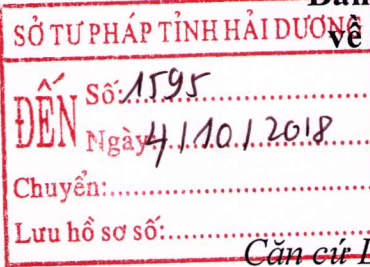 Ban
SỞ TƯ PHÁP TỈNH HẢI DƯƠNG
về
ĐẾN
Số: 1595
Ngày: 4/10/2018
Chuyển:
Lưu hồ sơ số:
Căn cứ